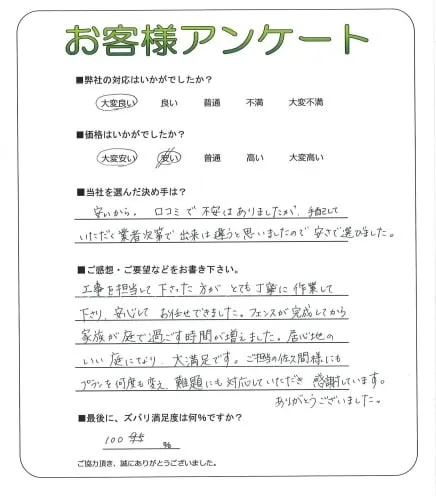 お客様アンケート
■弊社の対応はいかがでしたか？
大変良い 良い 普通 不満 大変不満
■価格はいかがでしたか？
大変安い 安い 普通 高い 大変高い
■当社を選んだ決め手は？
安いから。 口コミで不安はありましたが、
いただく業者次第で出来は違うと思いましたので安さで選びました。
■ご感想・ご要望などをお書き下さい。
工事を担当して下さった方がとても丁寧に作業して
下さり、安心してお任せできました。フェンスが完成してから
家族が庭で過ごす時間が増えました。居心地の
いい庭になり、大満足です。ご担当の佐久間様にも
プランを何度も変え、難題にも対応していただき感謝しています。
ありがとうございました。
■最後に、ズバリ満足度は何％ですか？
100 %
ご協力頂き、誠にありがとうございました。